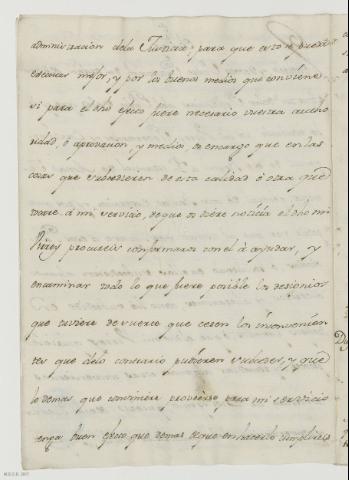 administracion dela Justicia: para que esto se pueda
executar mejor, y por los buenos medios que conviene
si para el dho efecto fuere necesario vuestra autho
ridad, ó aprovacion, y medios, os encargo que en las
cosas que subcedieren de esta calidad ó otra que
toque á mi servicio, de que os diere noticia el dho mi
Virrey procureis conformaros con el á ayudar, y
encaminar todo lo que fuere posible los designios
que tuviere de suerte que cesen los inconvenien
tes que delo contrario pudieren subceder, y que
lo demas que combiniere proveerse para mi servicio
tenga buen efecto que demas de que en hacerlo cumplireis